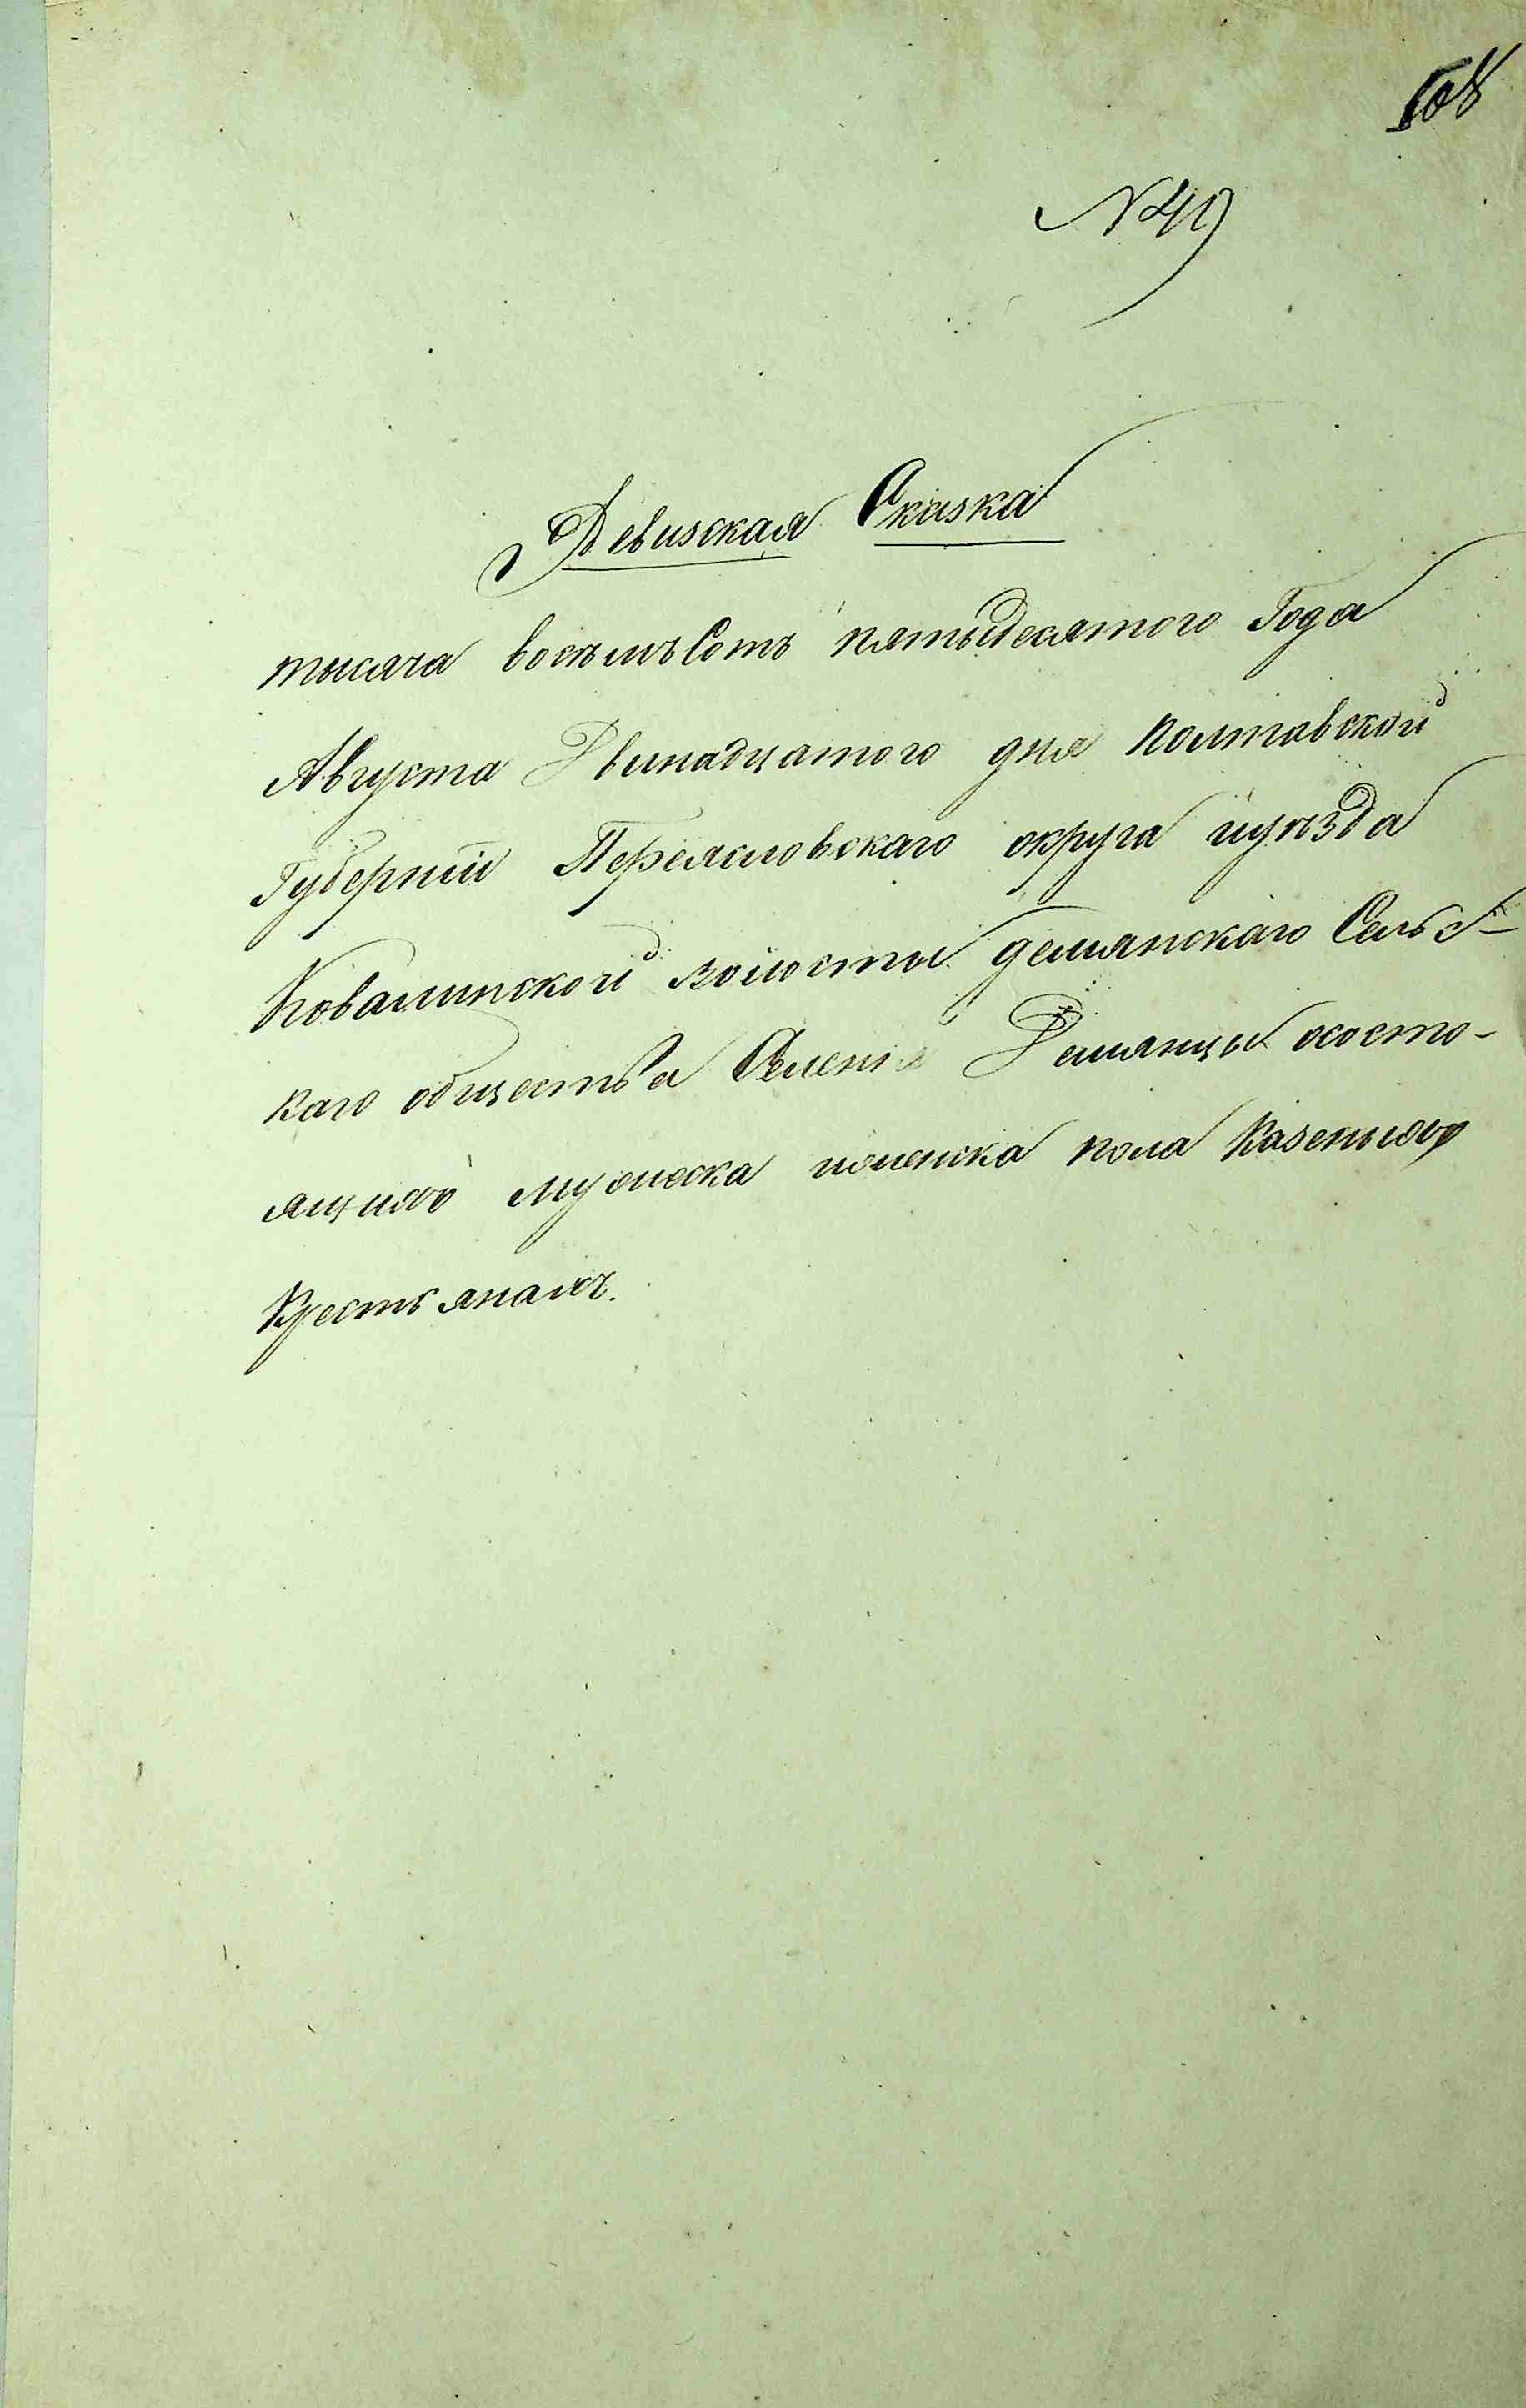 508
N 49
Ревизская Сказка
тысяча восемъ Сотъ пятьидесятого Года
Августа Двинадцатого дня Полтавской
Губернии Переясловскаго округа иуѣзда
Ковалинской волости демянскаго Сельс-
каго общества Селения Демянцы ососто-
ящихъ мужеска иженска пола Казеныхъ
Крестьянахъ.